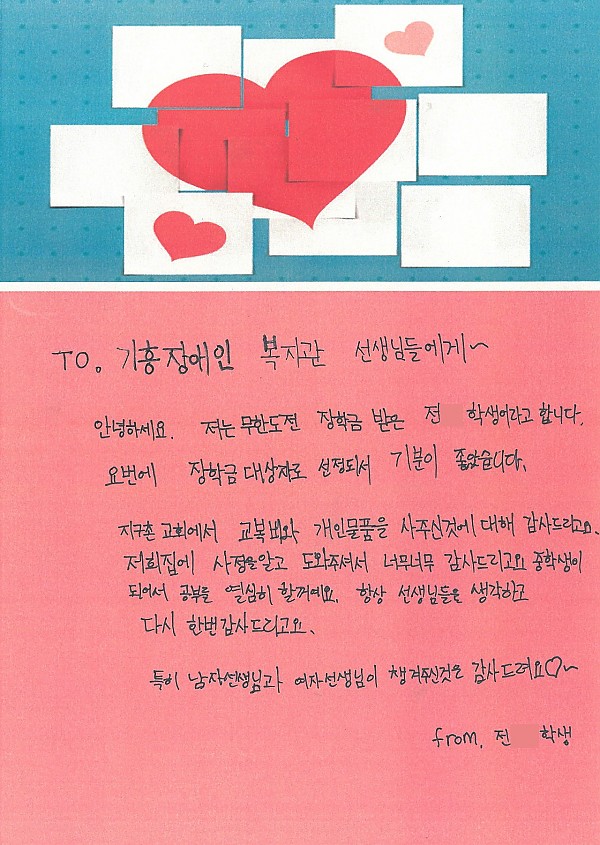 TO. 기흥장애인 복지관 선생님들에게~
안녕하세요. 저는 무한도전 장학금 받은 전 학생이라고 합니다.
요번에 장학금 대상자로 선정되서 기분이 좋았습니다.
지구촌 교회에서 교복비와 개인물품을 사주신것에 대해 감사드리고요.
저희집에 사정을알고 도와주셔서 너무너무 감사드리고요 중학생이
되어서 공부를 열심히 할꺼예요. 항상 선생님들은 생각하고
다시 한번감사드리고요.
특히 남자선생님과 여자선생님이 챙겨주신것은 감사드려요♡~
from. 전 학생